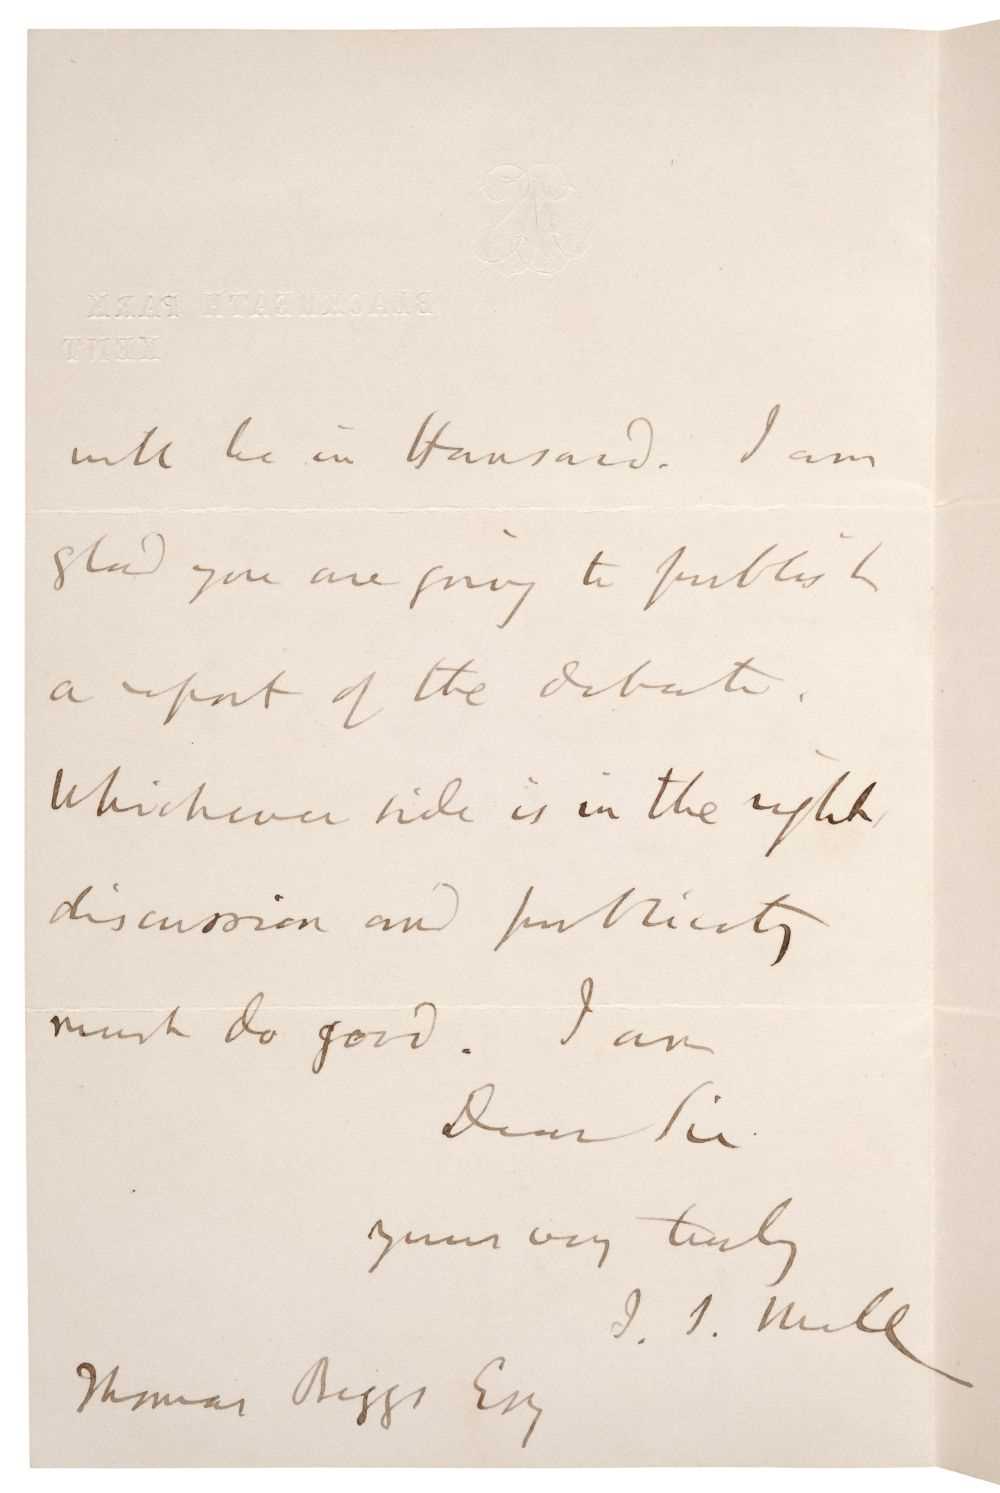 BLACKHEATH PARK
KENT
will be in Hansard. I am
glad you are going to publish
a report of the debate.
Whichever side is in the right,
discussion and publicity
must do good. I am
Dear Sir
yours very truly
J. S. Mill
Thomas Beggs Esq